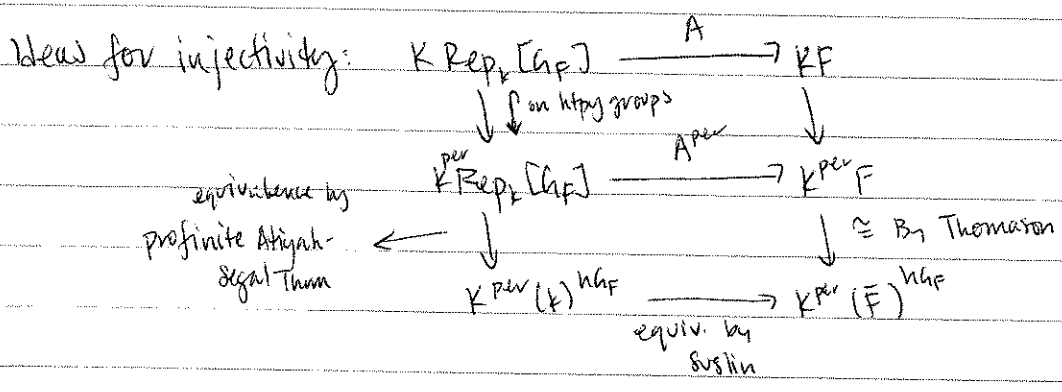 Ideas for injectivity: K Rep_k [G_F] A→ KF
↓ ↪ on htpy groups ↓
K^per Rep_k [G_F] A^per→ K^per F
equivalence by
profinite Atiyah- ← ↓ ↓ ≅ By Thomason
Segal Thm
K^per (k)^{hG_F} → K^per (F̄)^{hG_F}
equiv. by
Suslin